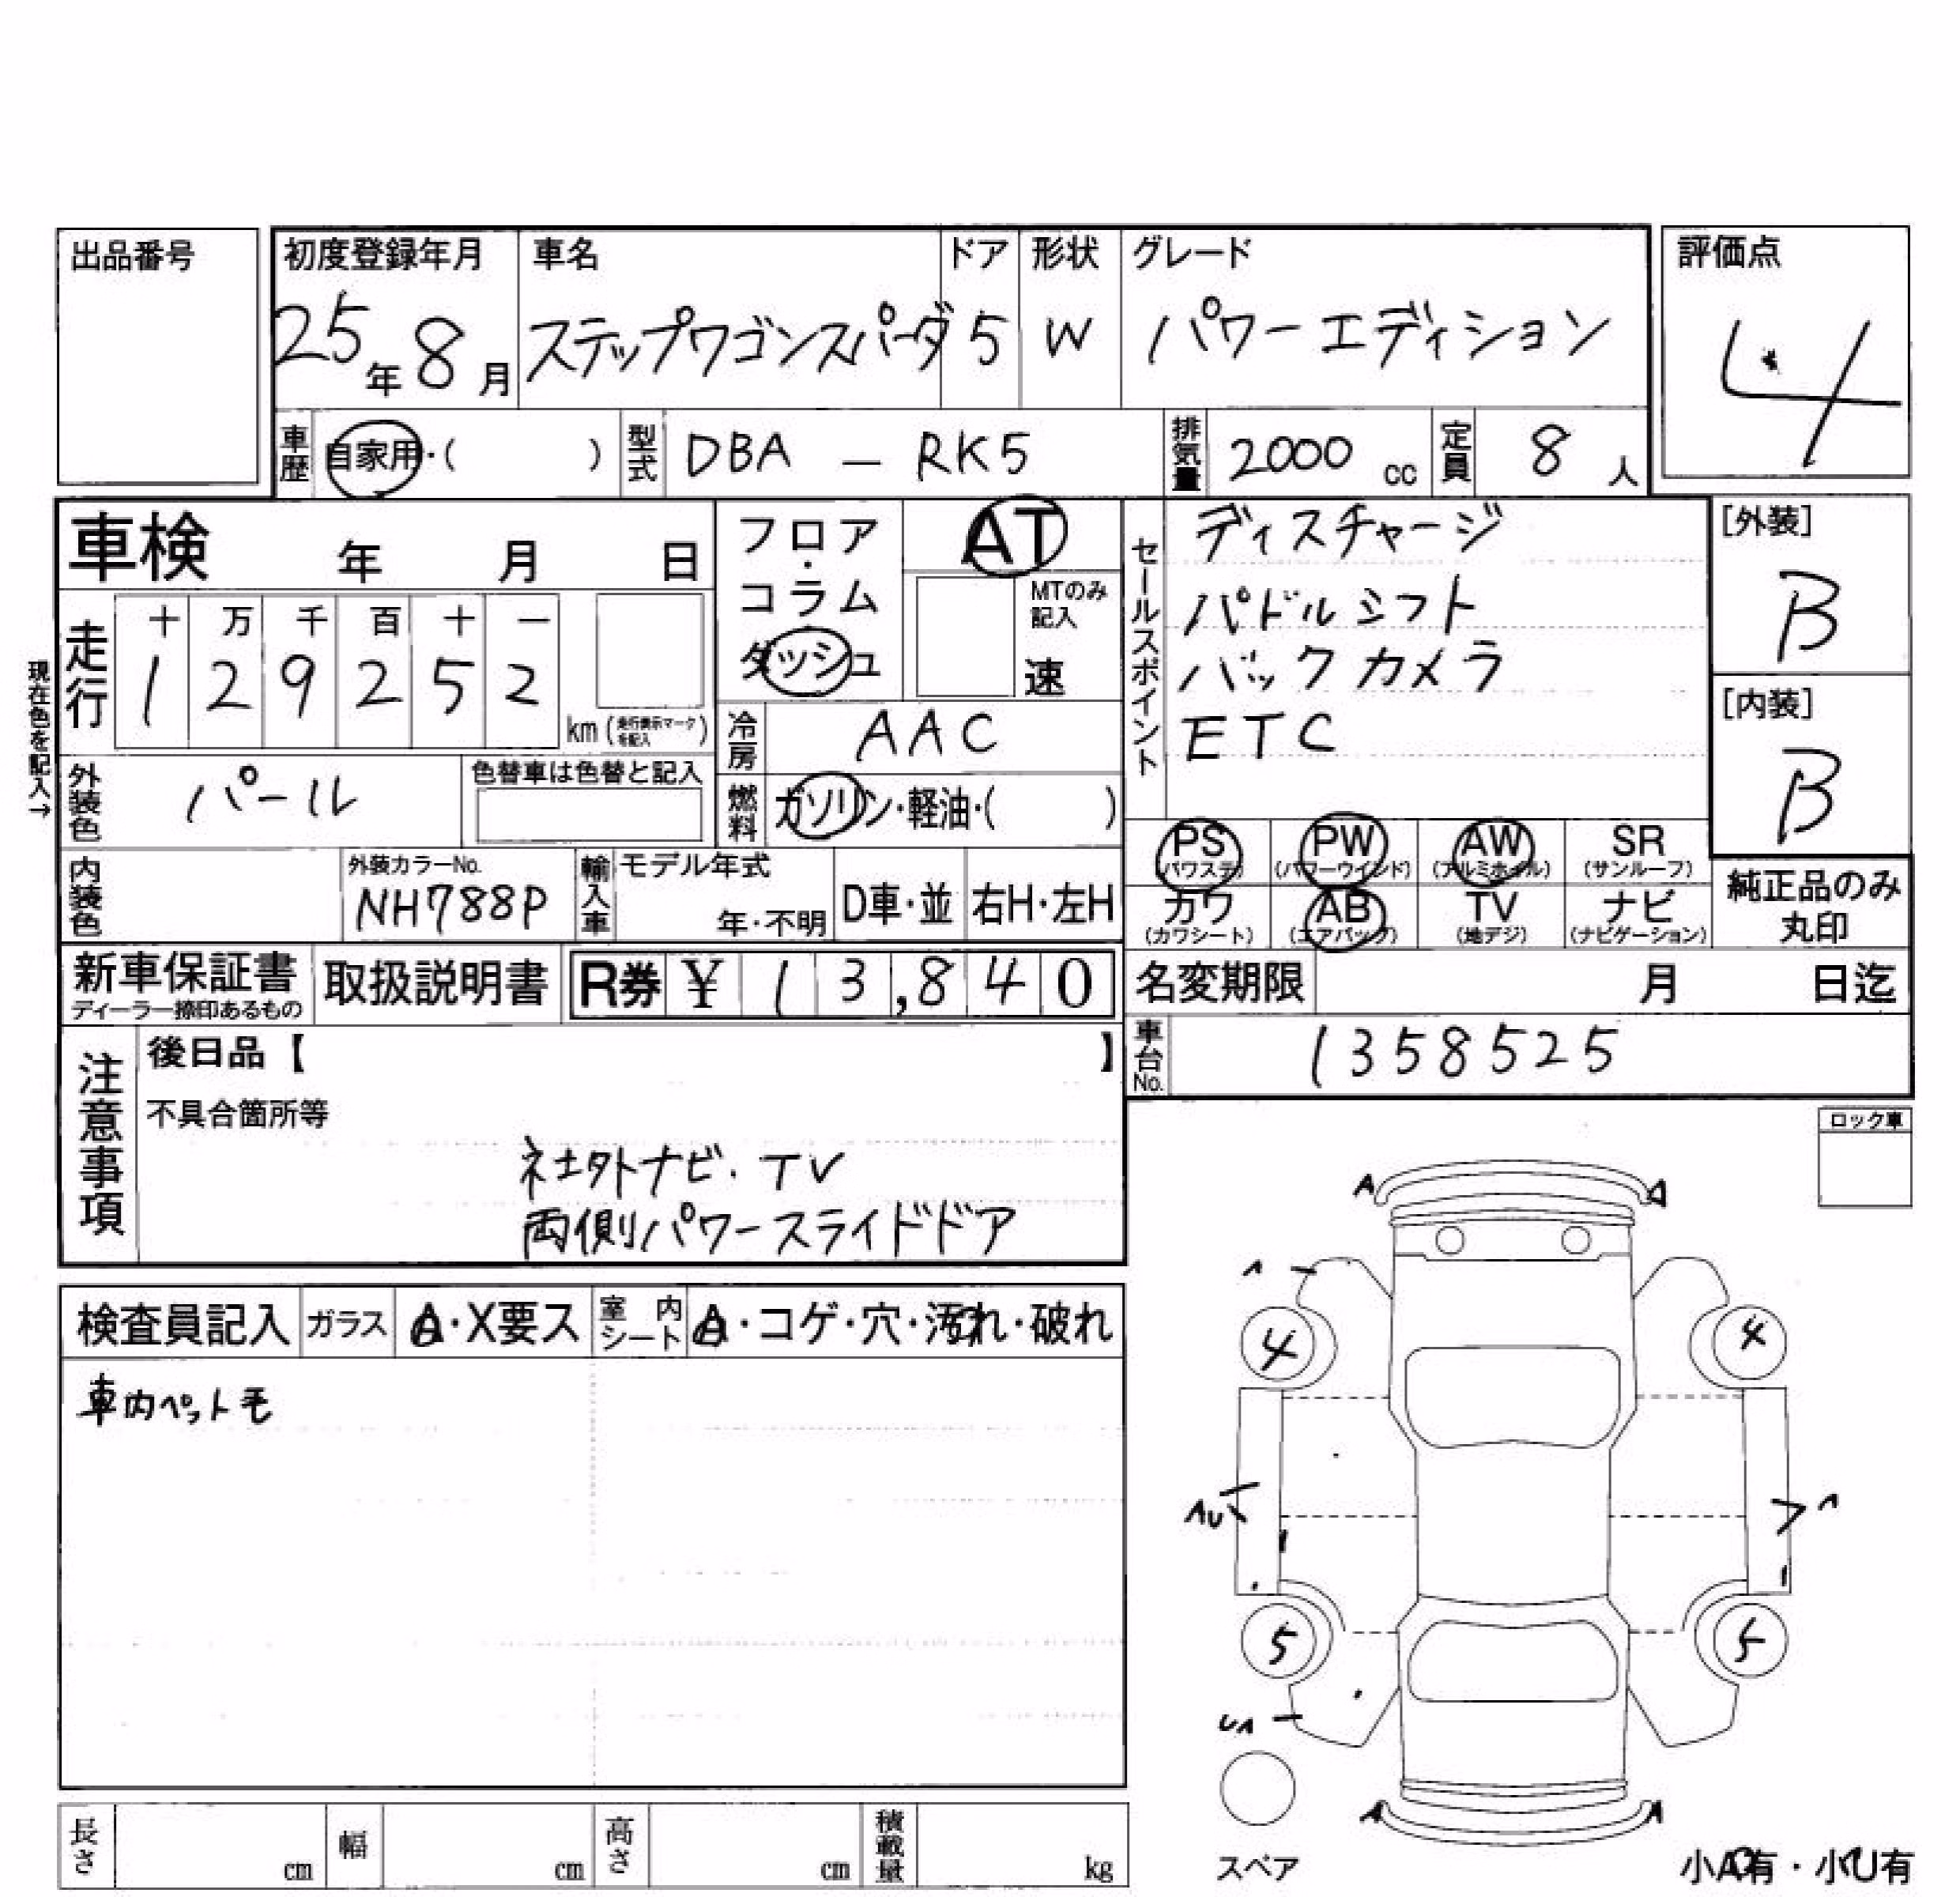 出品番号
初度登録年月 車名 ドア 形状 グレード 評価点
25年8月 ステップワゴンスパーダ 5 W パワーエディション 4
車歴 自家用・( ) 型式 DBA - RK5 排気量 2000 cc 定員 8 人
車検 年 月 日
フロア・コラム ダッシュ
AT
MTのみ記入
速
セールスポイント
ディスチャージ
パドルシフト
バックカメラ
ETC
[外装]
B
[内装]
B
現在色を記入→
走行 十 万 千 百 十 一
1 2 9 2 5 2 km (走行表示マークを記入)
冷房 AAC
外装色 パール 色替車は色替と記入
燃料 ガソリン・軽油・( )
PS (パワステ) PW (パワーウインド) AW (アルミホイル) SR (サンルーフ)
カワ (カワシート) AB (エアバッグ) TV (地デジ) ナビ (ナビゲーション)
純正品のみ丸印
内装色 外装カラーNo. NH788P 輸入車 モデル年式 年・不明 D車・並 右H・左H
新車保証書 ディーラー捺印あるもの 取扱説明書 R券 ¥ 13,840
名変期限 月 日迄
車台No. 1358525
注意事項
後日品【 】
不具合箇所等
社外ナビ・TV
両側パワースライドドア
ロック車
検査員記入 ガラス A・X要ス 室内シート A・コゲ・穴・汚れ・破れ
車内ペット毛
A A
4 4
5 5
A A
スペア
小A有・小U有
長さ cm 幅 cm 高さ cm 積載量 kg